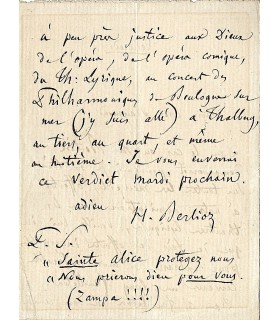 à peu près justice aux Dieux
de l'opéra, de l'opéra comique,
du Th: Lyrique, au concert des
Philharmoniques de Boulogne sur
mer (j'y suis allé) à Thalberg,
au tiers, au quart, et même
au huitième. Je vous enverrai
ce verdict mardi prochain.
adieu
H. Berlioz
P. S.
« Sainte alice protegez nous
« Nous prierons dieu pour vous.
(Zampa !!!!)